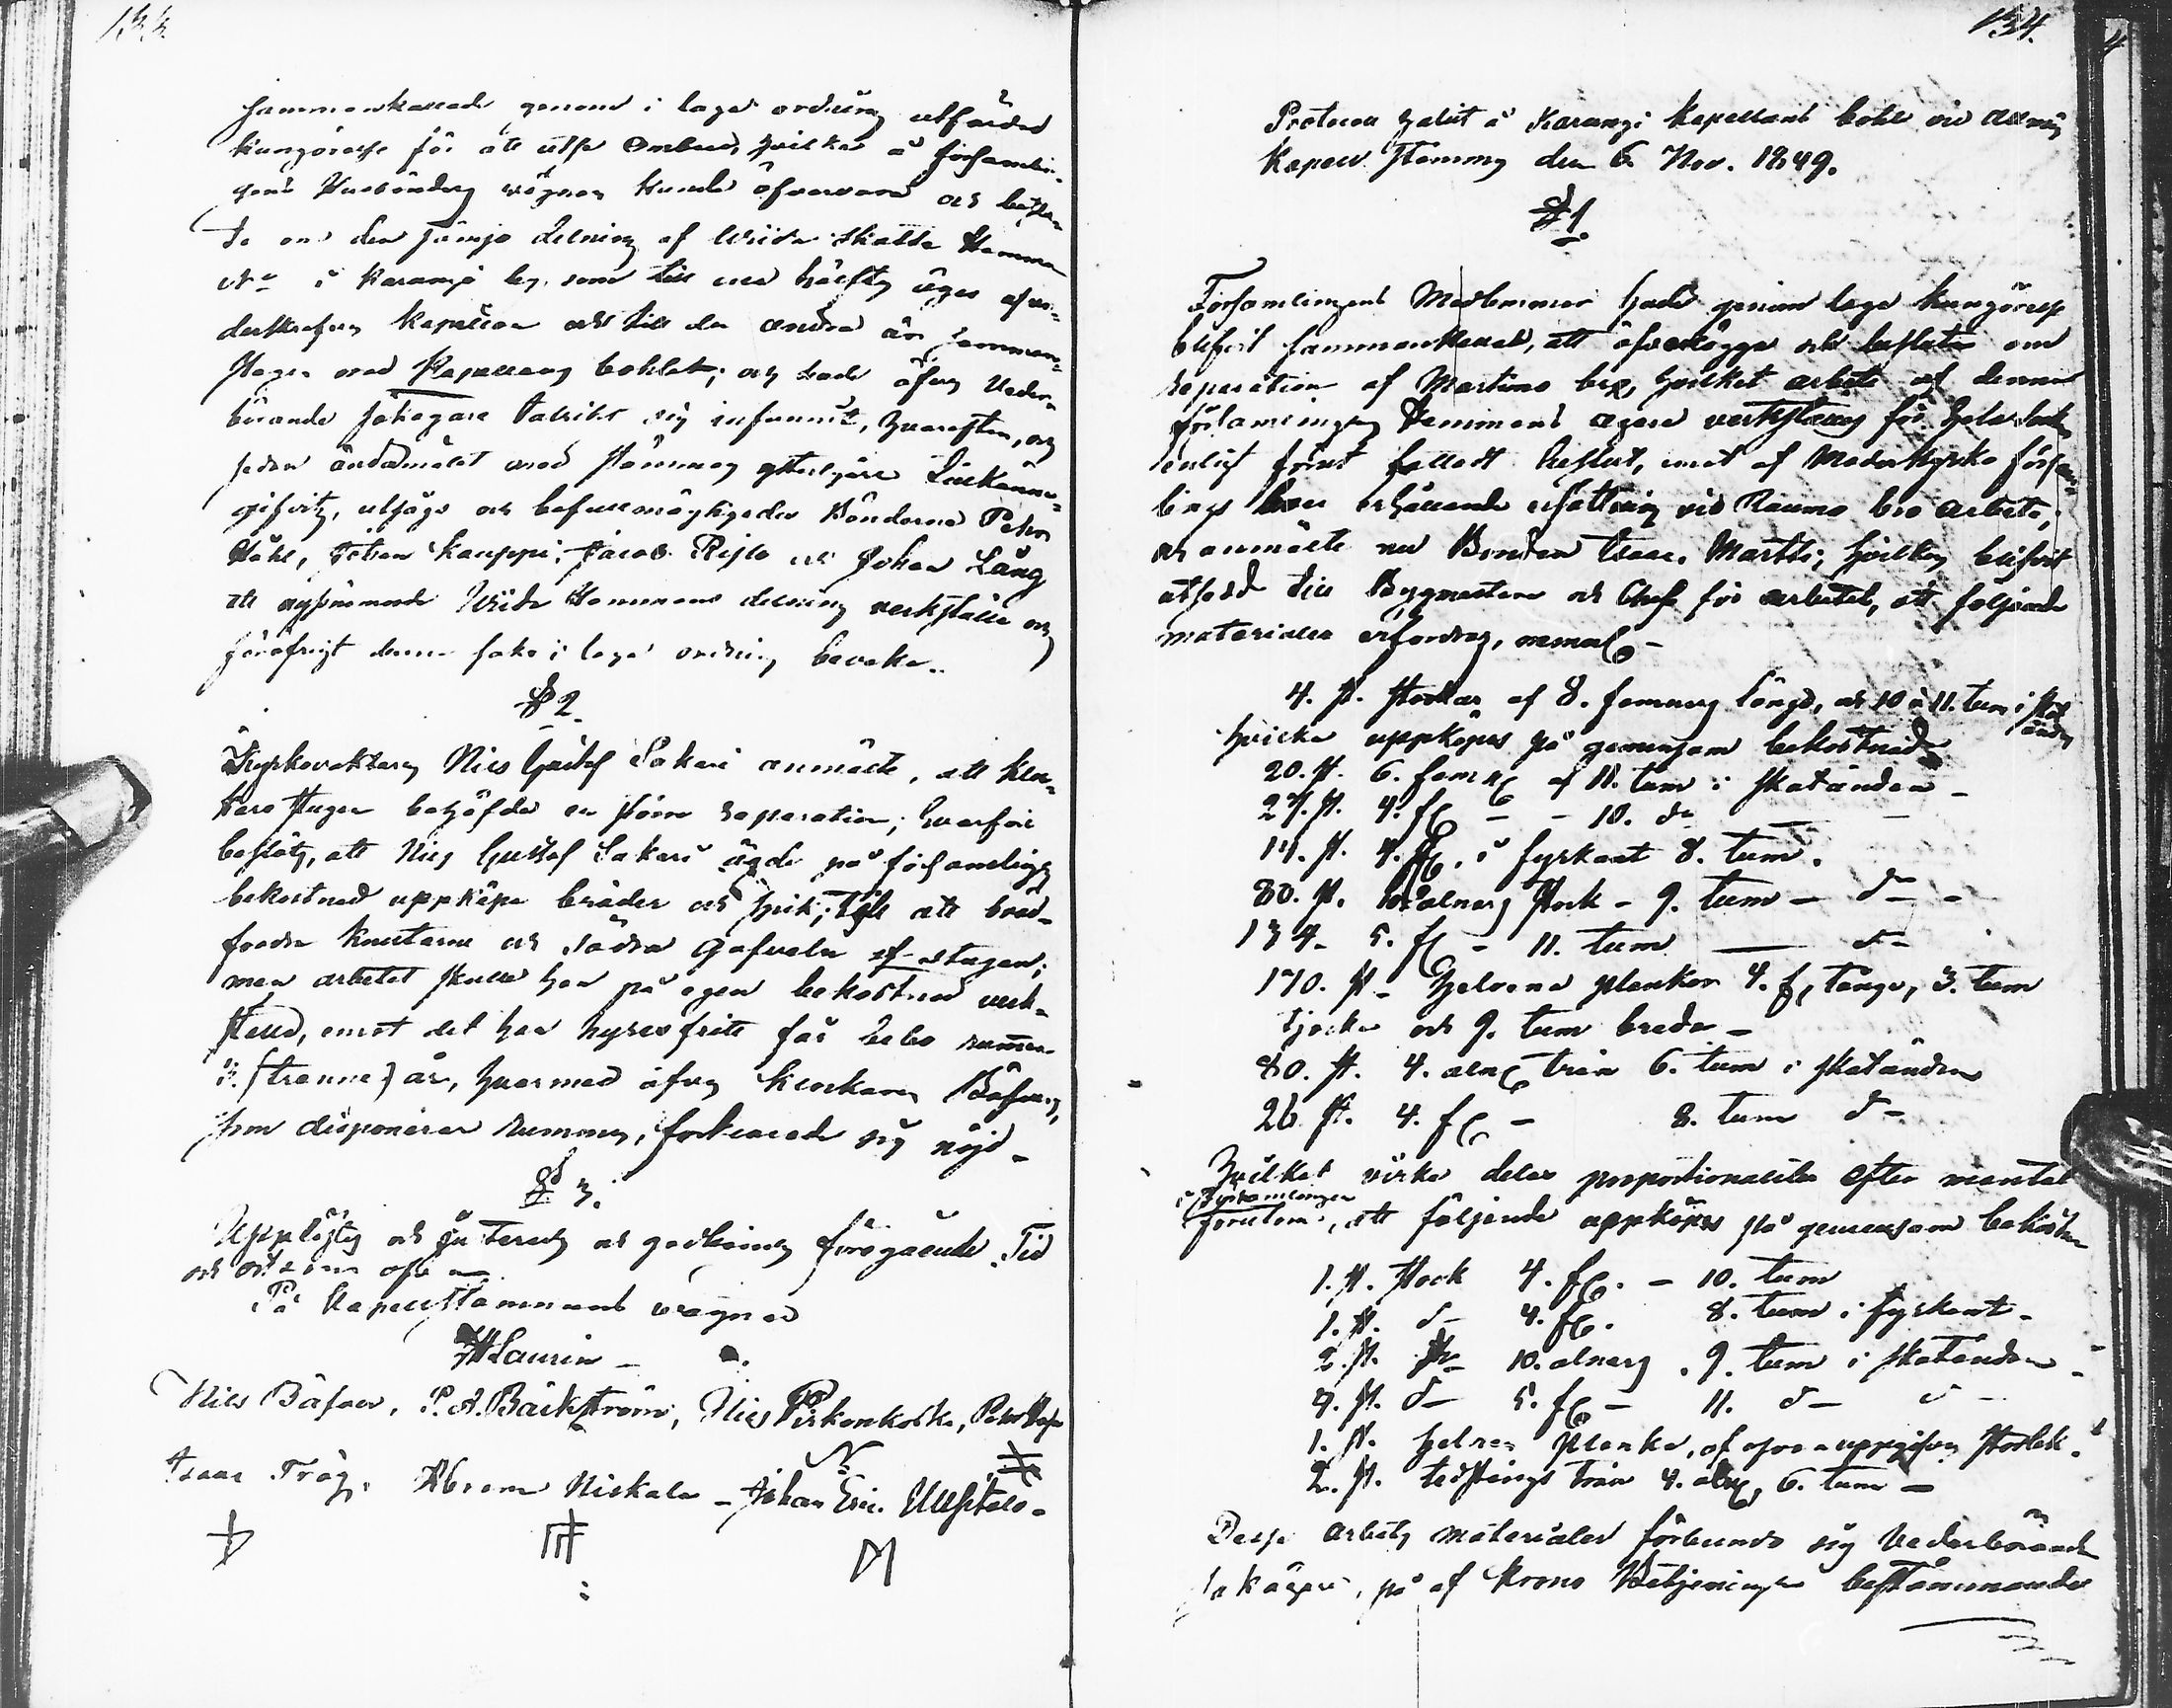 133.
sammankallade genom i laga ordning utfärdad
kungörelse för att utse Ombud, hvilka å församlin-
gens vägnar kunde öfvervara och beslu-
ta om den delning af Wiide Skatte Hemman
N:o i Karungi by, som till ena hälften äges af un-
derskrefven Kapellan och till den andra är samman-
slagen med Kapellans bohlet; och hade äfven Veder-
börande Jordägare talrikt sig infunnit, hvarefter, och
sedan ändamålet med stämman ytterligare tillkänna-
gifvits, utsågs och befullmägtigades Bönderne Petter
Ståhl, Johan Kauppi, Jacob och Johan Lång
att nyssnämnde Wiide Hemmans delning verkställa och
i öfrigt denna sak i laga ordning bevaka.
§ 2.
Kyrkovaktaren Nils Gustaf Sakari anmälte, att Kloc-
kare stugan behöfde en större reparation; hvarföre
beslöts, att Nils Gustaf Sakari ägde på församlingens
bekostnad uppköpa bräder och spik, till att bräd-
fodra knutarne och södra Gafveln af stugan;
men arbetet skulle han på egen bekostnad verk-
ställa, emot det han hyresfritt får bebo rummen
i 3. (trenne) år, hvarmed äfven Klockaren Bäfver,
som disponerar rummen, förklarade sig nöjd.
§ 3.
Uppläst och justerat och godkändt föregående. Tid
och ort som ofvan
På Kapellstämmans vägnar
Laurin
Nils Bäfver, P. A. Bäckström, Nils Pirkonkoski, Petter
Isaac Träg, Abram Niskala – Johan Eric
134.
Protocoll hållit å Karungi Kapellans bohl vid allmän
Kapell Stämma den 6. Nov. 1849.
§ 1.
Församlingens Medlemmar hade genom laga kungörelse
blifvit sammankallade, att öfverlägga och besluta om
reparation af Martimo bro, hvilket arbete af denna
församlings Hemmans ägare verkställes för hela
enligt förut fattadt beslut, emot af Moderkyrko försam-
lings boer erhållande ersättning vid Raumo bro arbete;
och anmälte nu Bonden Isaac Martti, hvilken blifvit
utsedd till Byggmästare och Chef för arbetet, att följande
materialier erfordras, nemligen
4. st. stockar af 8. famnars längd, och 10 à 11. tum i skat
ändan
hvilka uppköpes på gemensam bekostnad
20. st. 6. famn. af 11. tum i skatändan –
27. st. 4. f. – – 10. d:o – –
14. st. 4. f. i fyrkant 8. tum.
80. st. 10 alnars stock – 9. tum – d:o –
134 – 5. f. – 11. tum — d:o
170. st. helvena plankor 4. f. långa, 3. tum
tjocka och 9. tum breda –
80. st. 4. aln. trän 6. tum i skatändan
26 st. 4. f. – 8. tum d:o
Hvilket virke delas proportionaliter efter mantal
i Församlingen
förutom, att följande uppköpes på gemensam bekostnad
1. st. stock 4. f. – 10. tum
1. st. d:o 4. f. 8. tum i fyrkant –
2. st. d:o 10. alnars 9. tum i skatändan –
4. st. d:o 5. f. – 11. d:o d:o –
1. st. helvena planka, af ofvan uppgifven storlek.
2. st. trän 4. aln, 6. tum –
Desse arbets materialier förbundo sig Vederbörande
Jordägare, på af Krono Betjeningen bestämmande